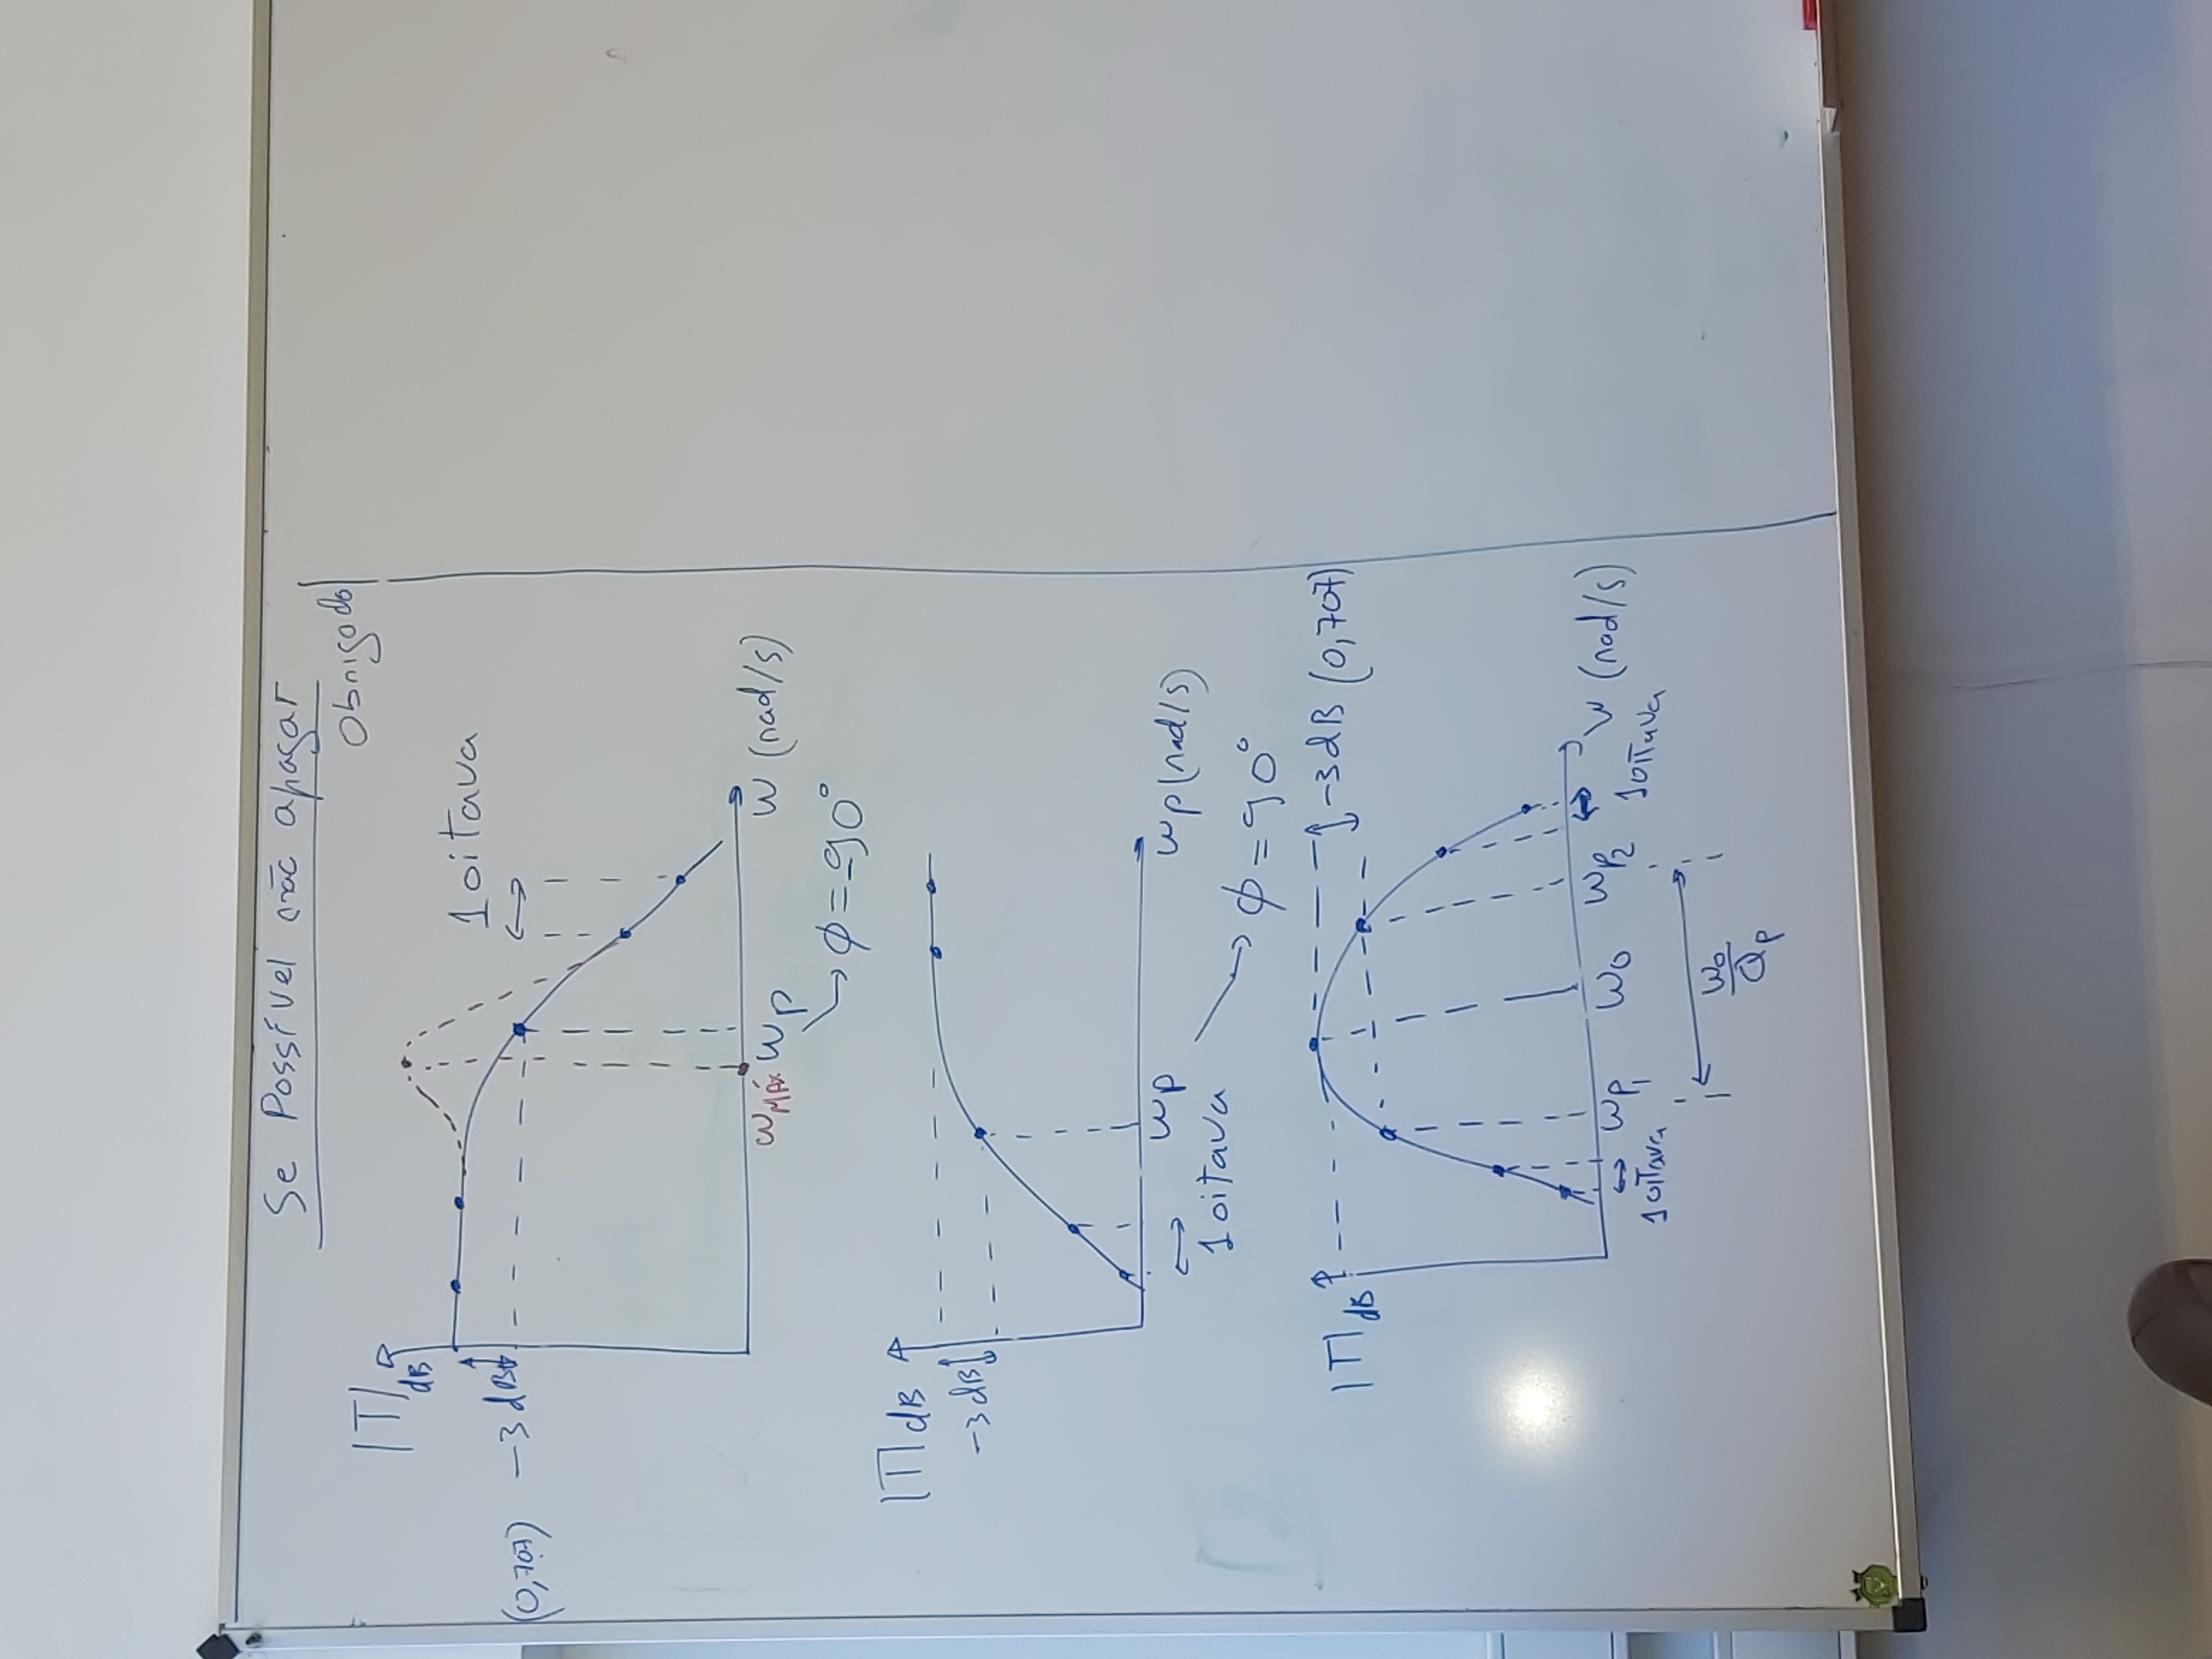 Se Possível não apagar
Obrigado
|T|dB
1 oitava
(0,707) -3 dB
ωMÁX ωp
ω (rad/s)
φ = -90°
|T|dB
-3 dB
ωp
ωp (rad/s)
1 oitava
φ = 90°
|T|dB
-3 dB (0,707)
ωp1 ω0 ωp2 ω (rad/s)
1 oitava
1 oitava
ω0
Qp